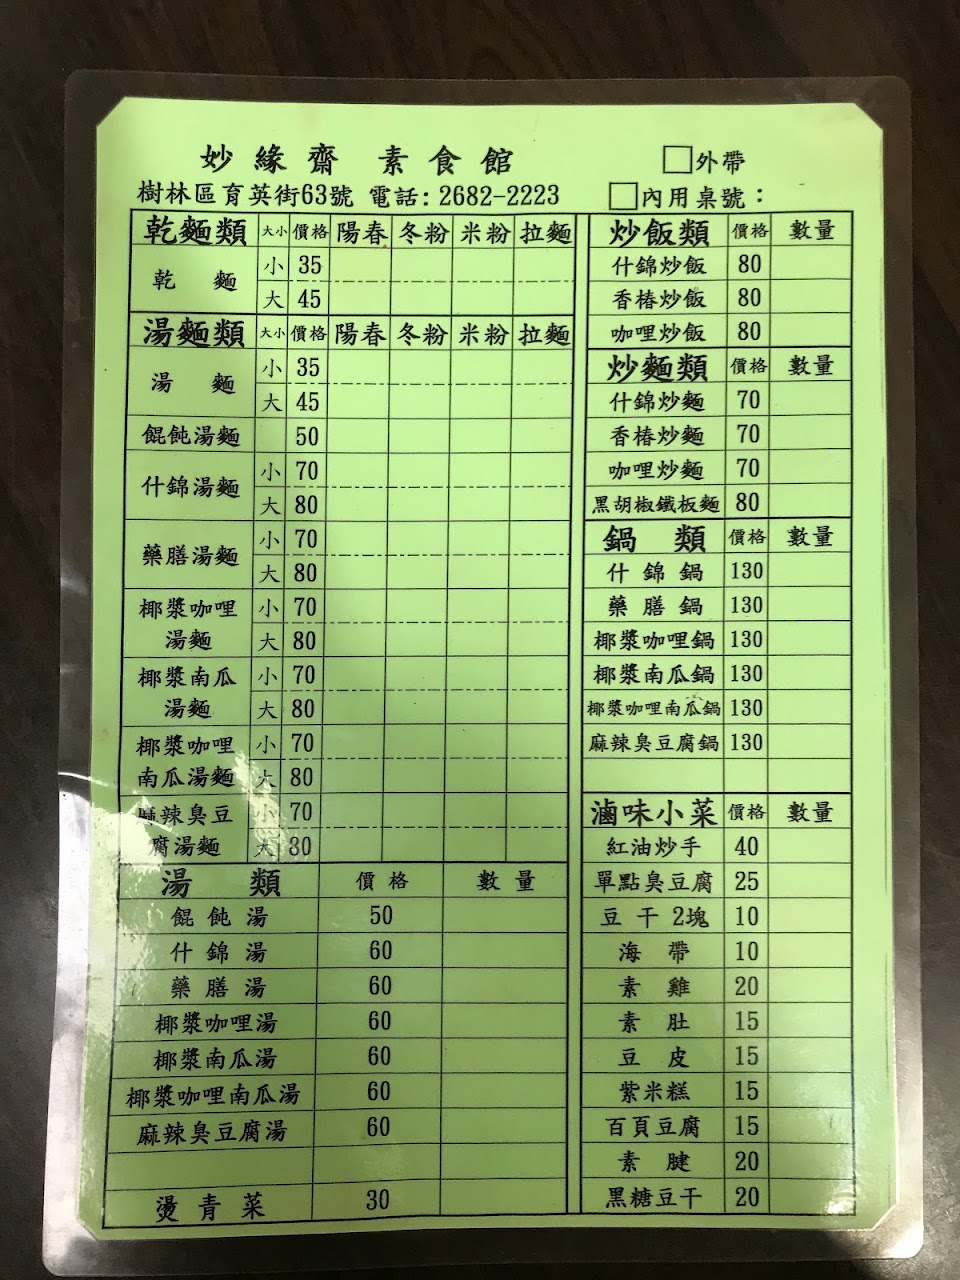 妙緣齋 素食館
□外帶
樹林區育英街63號 電話：2682-2223
□內用桌號：
乾麵類 大小 價格 陽春 冬粉 米粉 拉麵
乾麵 小 35
大 45
湯麵類 大小 價格 陽春 冬粉 米粉 拉麵
湯麵 小 35
大 45
餛飩湯麵 50
什錦湯麵 小 70
大 80
藥膳湯麵 小 70
大 80
椰漿咖哩 小 70
湯麵 大 80
椰漿南瓜 小 70
湯麵 大 80
椰漿咖哩 小 70
南瓜湯麵 大 80
麻辣臭豆 小 70
腐湯麵 大 80
湯類 價格 數量
餛飩湯 50
什錦湯 60
藥膳湯 60
椰漿咖哩湯 60
椰漿南瓜湯 60
椰漿咖哩南瓜湯 60
麻辣臭豆腐湯 60
燙青菜 30
炒飯類 價格 數量
什錦炒飯 80
香椿炒飯 80
咖哩炒飯 80
炒麵類 價格 數量
什錦炒麵 70
香椿炒麵 70
咖哩炒麵 70
黑胡椒鐵板麵 80
鍋類 價格 數量
什錦鍋 130
藥膳鍋 130
椰漿咖哩鍋 130
椰漿南瓜鍋 130
椰漿咖哩南瓜鍋 130
麻辣臭豆腐鍋 130
滷味小菜 價格 數量
紅油炒手 40
單點臭豆腐 25
豆干2塊 10
海帶 10
素雞 20
素肚 15
豆皮 15
紫米糕 15
百頁豆腐 15
素腱 20
黑糖豆干 20